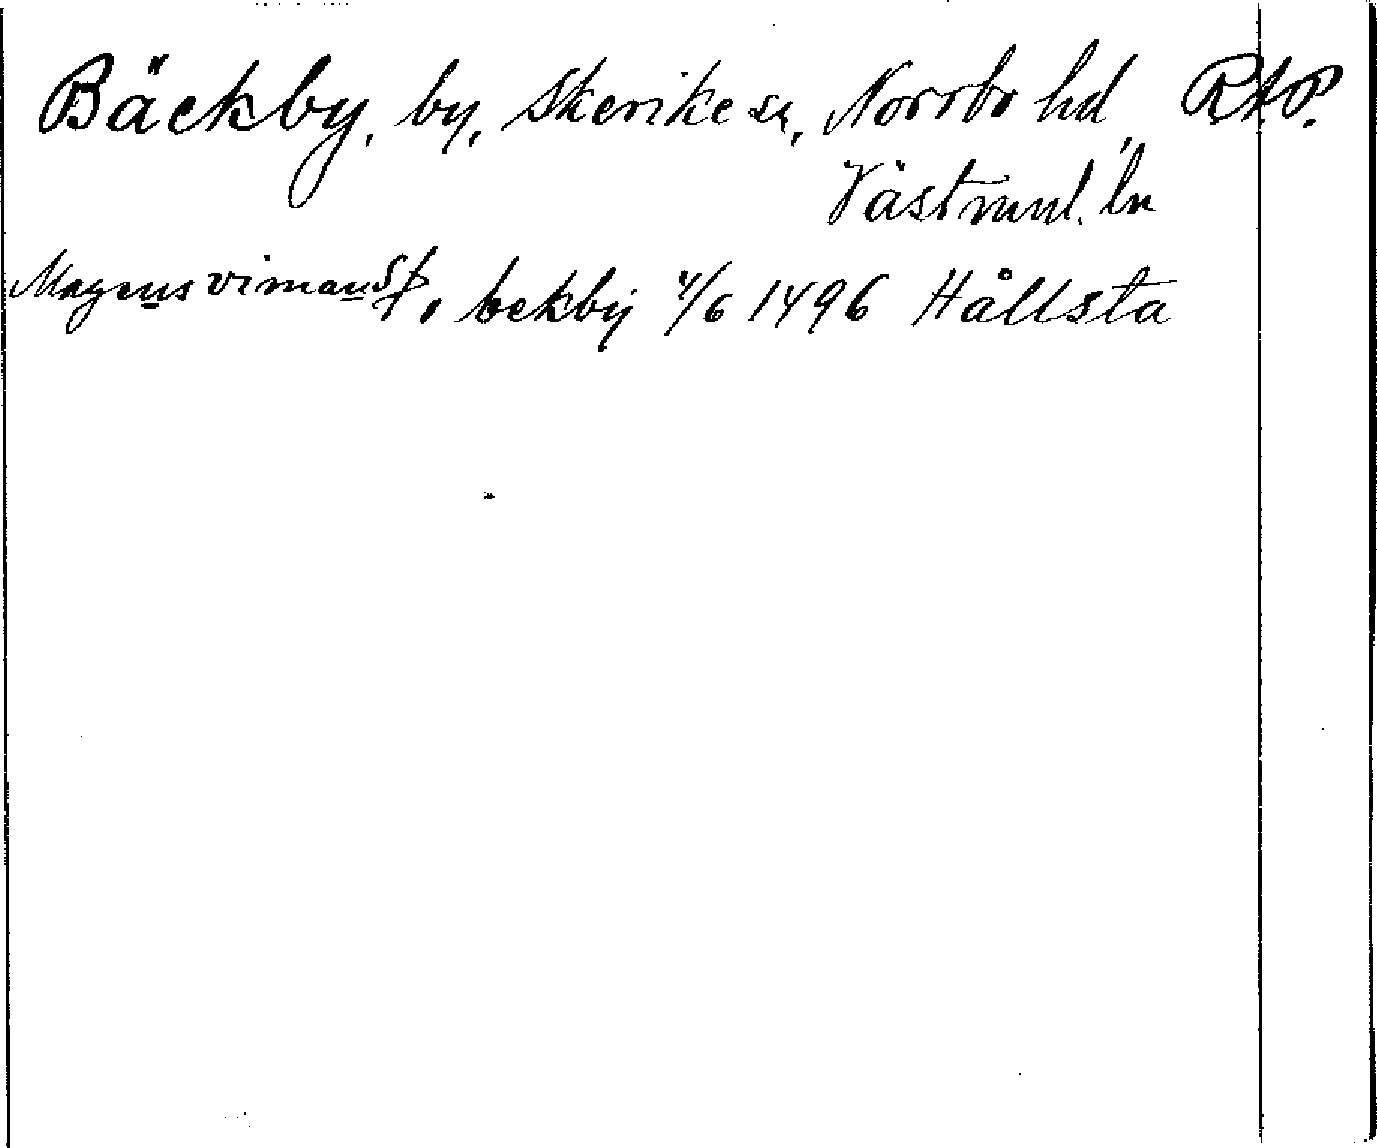 Bäckby, by, Skerike sn, Norrbo hd, RAP.
Västmnl. ln
Magnus vimand i bekbij 4/6 1496 Hållsta